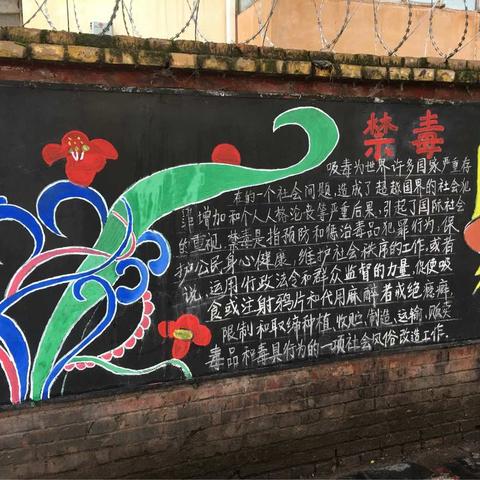 禁毒
吸毒为世界许多国家严重存
在的一个社会问题,造成了超越国界的社会犯
罪增加和个人人格沦丧等严重后果,引起了国际社会
的重视。禁毒是指预防和惩治毒品犯罪行为,保
护公民身心健康,维护社会秩序的工作。或者
说,运用行政法令和群众监督的力量,促使吸
食或注射鸦片和代用麻醉者戒绝瘾癖,
限制和取缔种植,收贮,制造,运输,贩卖
毒品和毒具行为的一项社会风俗改造工作.